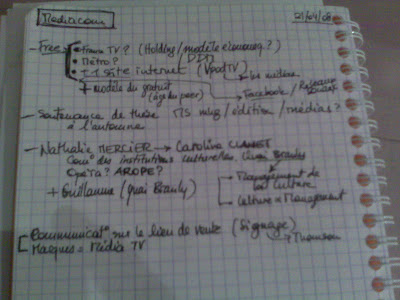 Mediacom
21/04/08
- Free • France TV? (Holding / modèle économiq.?)
• Métro? (DDN)
• 1 site internet (VpodTV)
+ modèle du gratuit
Facebook / Réseaux
- Soutenance de thèse CTS mkg/édition/médias?
à l'automne
- Nathalie MERCIER → Caroline CLANET
Com° des institutions culturelles. Quai Branly
Opéra? AROPE?
→ Management de la Culture
+ Guillaume (Quai Branly)
→ Culture & Management
Communicat° sur le lieu de vente (Signage)
→ Thomson
Marques = Média TV